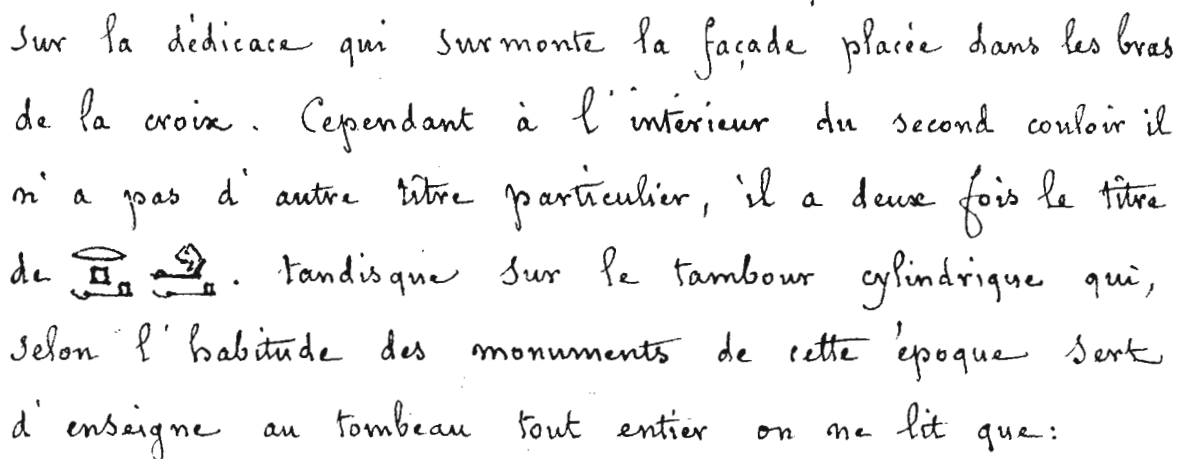 sur la dédicace qui surmonte la façade placée dans les bras
de la croix. Cependant à l'intérieur du second couloir il
n'a pas d'autre titre particulier, il a deux fois le titre
de . tandisque sur le tambour cylindrique qui,
selon l'habitude des monuments de cette époque sert
d'enseigne au tombeau tout entier on ne lit que: